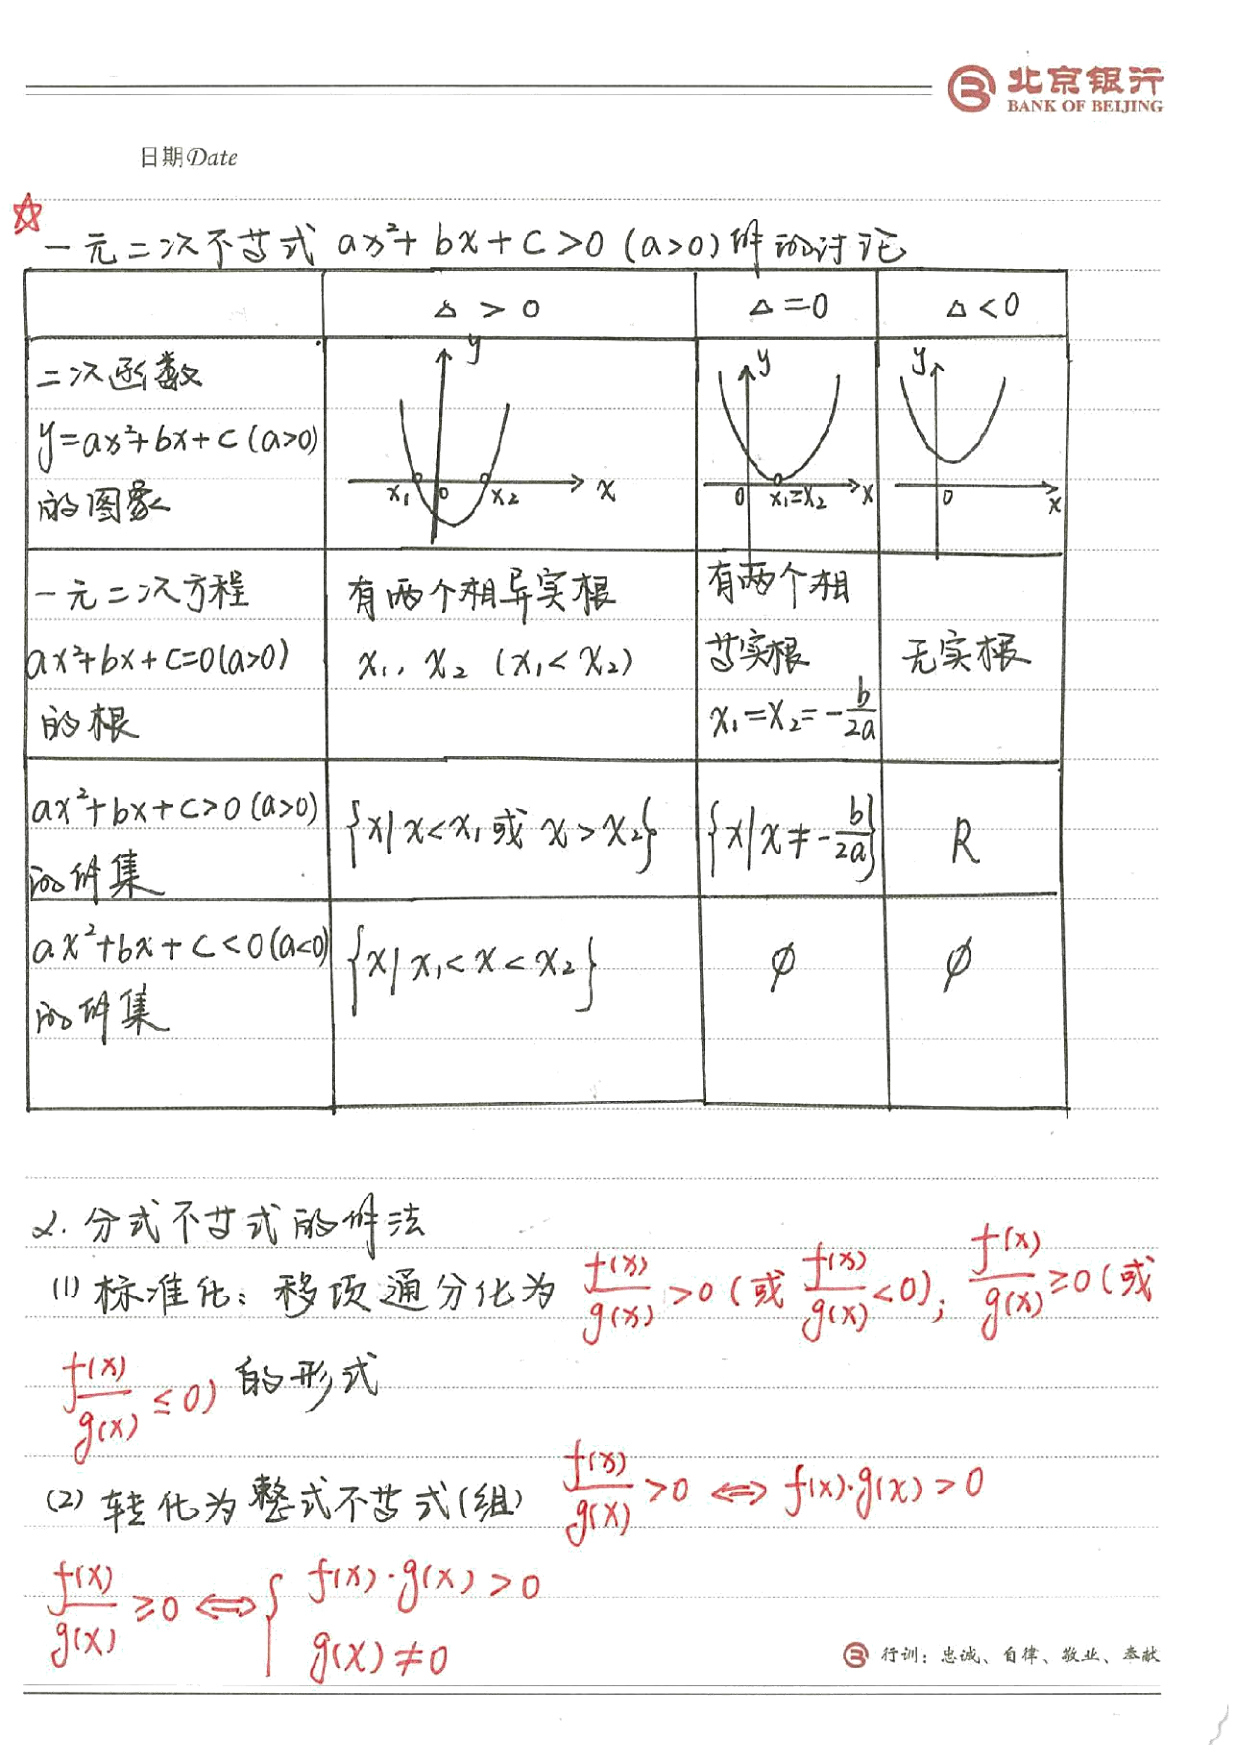 北京银行
BANK OF BEIJING
日期Date
☆
一元二次不等式 ax²+bx+c>0 (a>0)解的讨论
△>0 △=0 △<0
二次函数
y=ax²+bx+c (a>0)
的图象
y x x₁ 0 x₂
y x 0 x₁=x₂
y x 0
一元二次方程
ax²+bx+c=0(a>0)
的根
有两个相异实根
x₁, x₂ (x₁<x₂)
有两个相
等实根
x₁=x₂=-b/2a
无实根
ax²+bx+c>0 (a>0)
的解集
{x|x<x₁或x>x₂}
{x|x≠-b/2a}
R
ax²+bx+c<0(a<0)
的解集
{x|x₁<x<x₂}
∅
∅
2. 分式不等式的解法
(1) 标准化: 移项通分化为 f(x)/g(x)>0 (或 f(x)/g(x)<0); f(x)/g(x)≥0 (或
f(x)/g(x)≤0) 的形式
(2) 转化为整式不等式(组) f(x)/g(x)>0 ⟺ f(x)·g(x)>0
f(x)/g(x)≥0 ⟺ { f(x)·g(x)>0
g(x)≠0
行训: 忠诚、自律、敬业、奉献